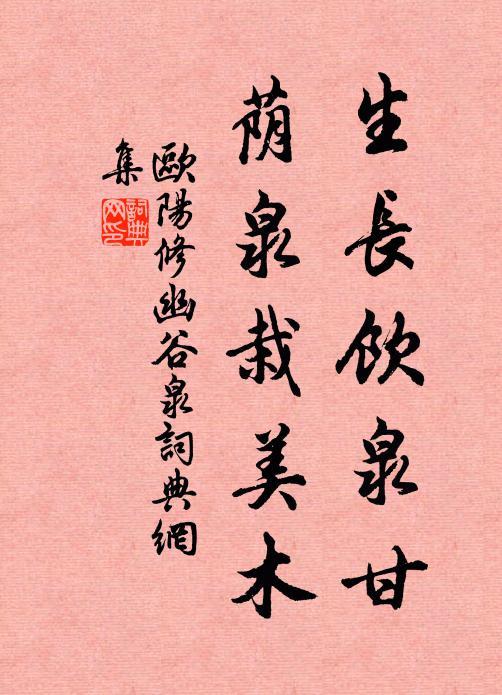 生長飲泉甘
蔭泉栽美木
歐陽修幽谷泉詞典網
集
詞典
网印